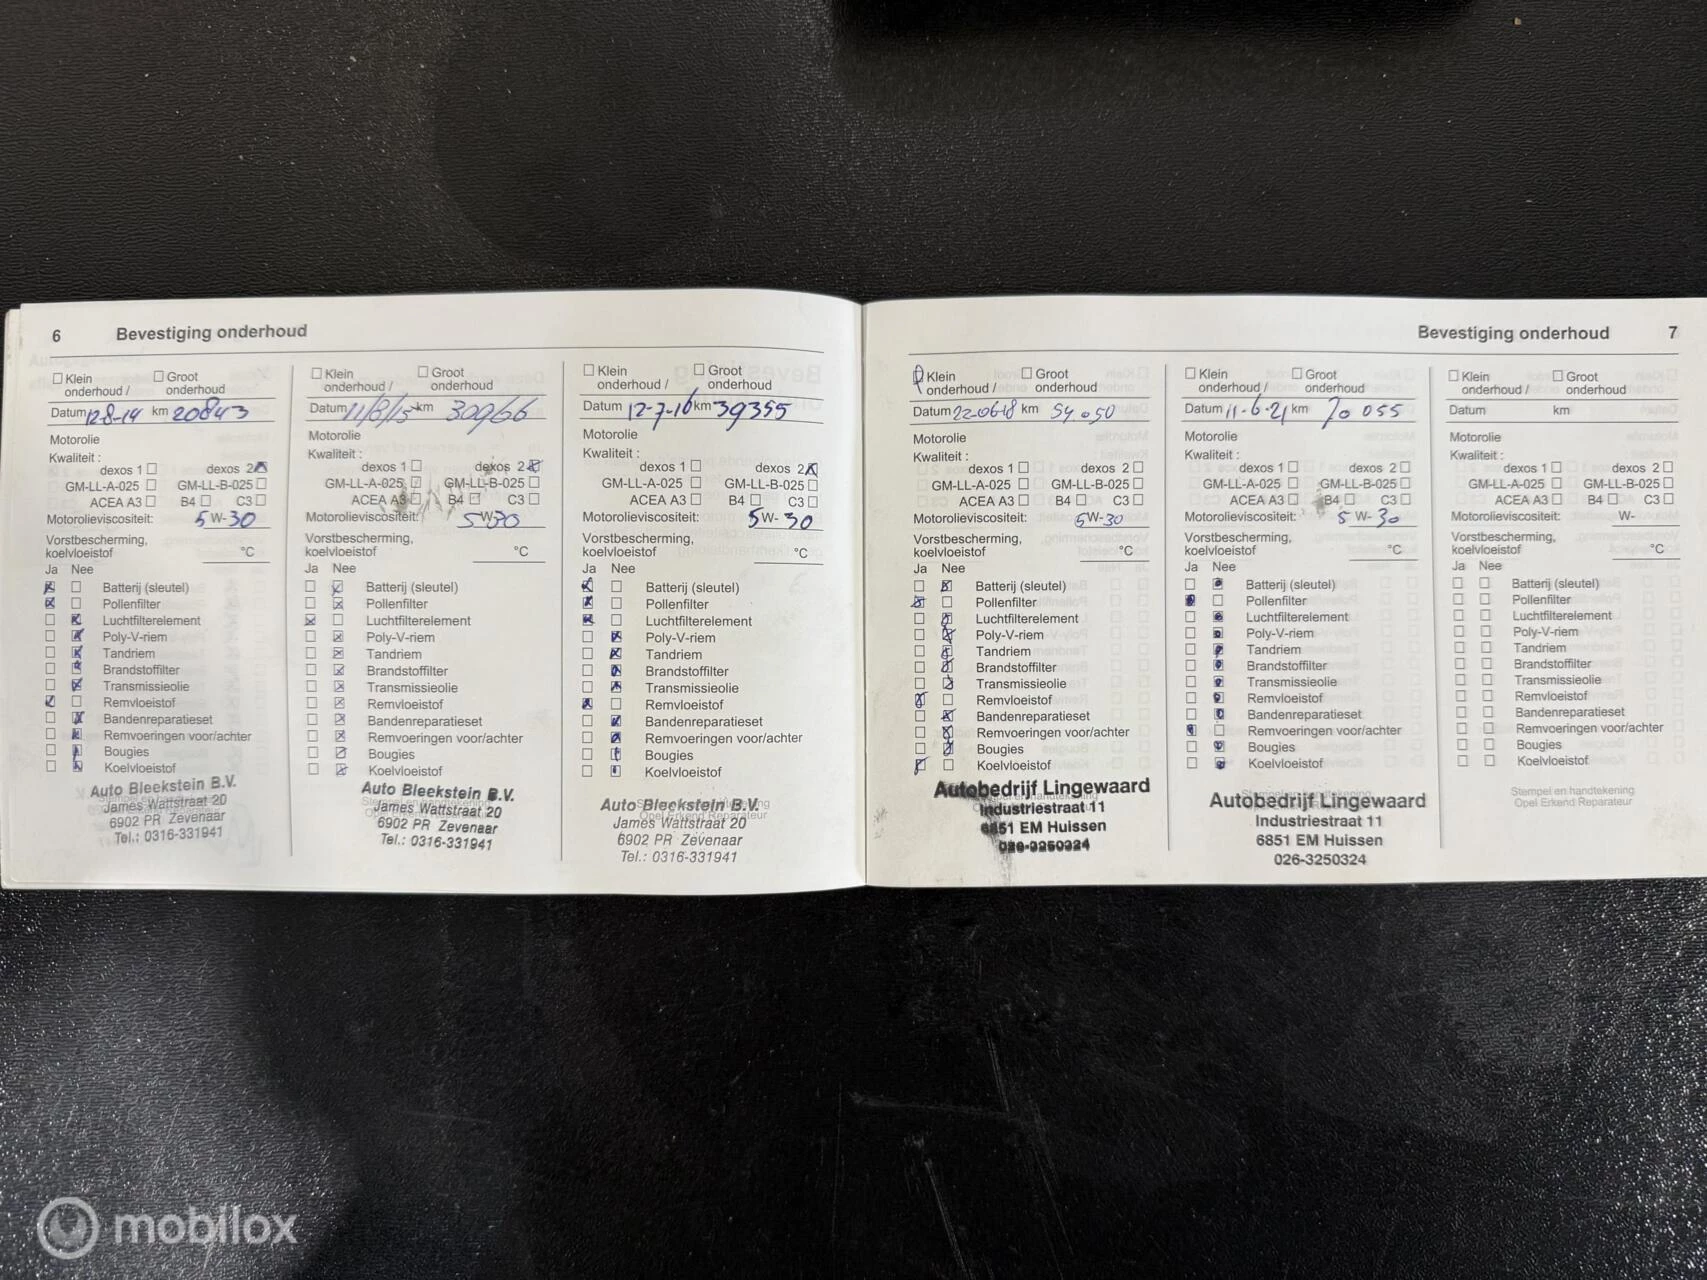 6 Bevestiging onderhoud
Klein onderhoud / Groot onderhoud
Datum 12-8-14 km 20843
Motorolie
Kwaliteit :
dexos 1 dexos 2
GM-LL-A-025 GM-LL-B-025
ACEA A3 B4 C3
Motorolieviscositeit: 5 W- 30
Vorstbescherming,
koelvloeistof °C
Ja Nee
Batterij (sleutel)
Pollenfilter
Luchtfilterelement
Poly-V-riem
Tandriem
Brandstoffilter
Transmissieolie
Remvloeistof
Bandenreparatieset
Remvoeringen voor/achter
Bougies
Koelvloeistof
Auto Bleekstein B.V.
James Wattstraat 20
6902 PR Zevenaar
Tel.: 0316-331941
Klein onderhoud / Groot onderhoud
Datum 11/8/15 km 30966
Motorolie
Kwaliteit :
dexos 1 dexos 2
GM-LL-A-025 GM-LL-B-025
ACEA A3 B4 C3
Motorolieviscositeit: 5 W- 30
Vorstbescherming,
koelvloeistof °C
Ja Nee
Batterij (sleutel)
Pollenfilter
Luchtfilterelement
Poly-V-riem
Tandriem
Brandstoffilter
Transmissieolie
Remvloeistof
Bandenreparatieset
Remvoeringen voor/achter
Bougies
Koelvloeistof
Auto Bleekstein B.V.
James Wattstraat 20
6902 PR Zevenaar
Tel.: 0316-331941
Klein onderhoud / Groot onderhoud
Datum 12-7-16 km 39355
Motorolie
Kwaliteit :
dexos 1 dexos 2
GM-LL-A-025 GM-LL-B-025
ACEA A3 B4 C3
Motorolieviscositeit: 5 W- 30
Vorstbescherming,
koelvloeistof °C
Ja Nee
Batterij (sleutel)
Pollenfilter
Luchtfilterelement
Poly-V-riem
Tandriem
Brandstoffilter
Transmissieolie
Remvloeistof
Bandenreparatieset
Remvoeringen voor/achter
Bougies
Koelvloeistof
Auto Bleekstein B.V.
James Wattstraat 20
6902 PR Zevenaar
Tel.: 0316-331941
Bevestiging onderhoud 7
Klein onderhoud / Groot onderhoud
Datum 22-06-18 km 54.050
Motorolie
Kwaliteit :
dexos 1 dexos 2
GM-LL-A-025 GM-LL-B-025
ACEA A3 B4 C3
Motorolieviscositeit: 5 W- 30
Vorstbescherming,
koelvloeistof °C
Ja Nee
Batterij (sleutel)
Pollenfilter
Luchtfilterelement
Poly-V-riem
Tandriem
Brandstoffilter
Transmissieolie
Remvloeistof
Bandenreparatieset
Remvoeringen voor/achter
Bougies
Koelvloeistof
Autobedrijf Lingewaard
Industriestraat 11
6851 EM Huissen
026-3250324
Klein onderhoud / Groot onderhoud
Datum 11-6-21 km 70 055
Motorolie
Kwaliteit :
dexos 1 dexos 2
GM-LL-A-025 GM-LL-B-025
ACEA A3 B4 C3
Motorolieviscositeit: 5 W- 30
Vorstbescherming,
koelvloeistof °C
Ja Nee
Batterij (sleutel)
Pollenfilter
Luchtfilterelement
Poly-V-riem
Tandriem
Brandstoffilter
Transmissieolie
Remvloeistof
Bandenreparatieset
Remvoeringen voor/achter
Bougies
Koelvloeistof
Autobedrijf Lingewaard
Industriestraat 11
6851 EM Huissen
026-3250324
Klein onderhoud / Groot onderhoud
Datum km
Motorolie
Kwaliteit :
dexos 1 dexos 2
GM-LL-A-025 GM-LL-B-025
ACEA A3 B4 C3
Motorolieviscositeit: W-
Vorstbescherming,
koelvloeistof °C
Ja Nee
Batterij (sleutel)
Pollenfilter
Luchtfilterelement
Poly-V-riem
Tandriem
Brandstoffilter
Transmissieolie
Remvloeistof
Bandenreparatieset
Remvoeringen voor/achter
Bougies
Koelvloeistof
Stempel en handtekening
Opel Erkend Reparateur
mobilox